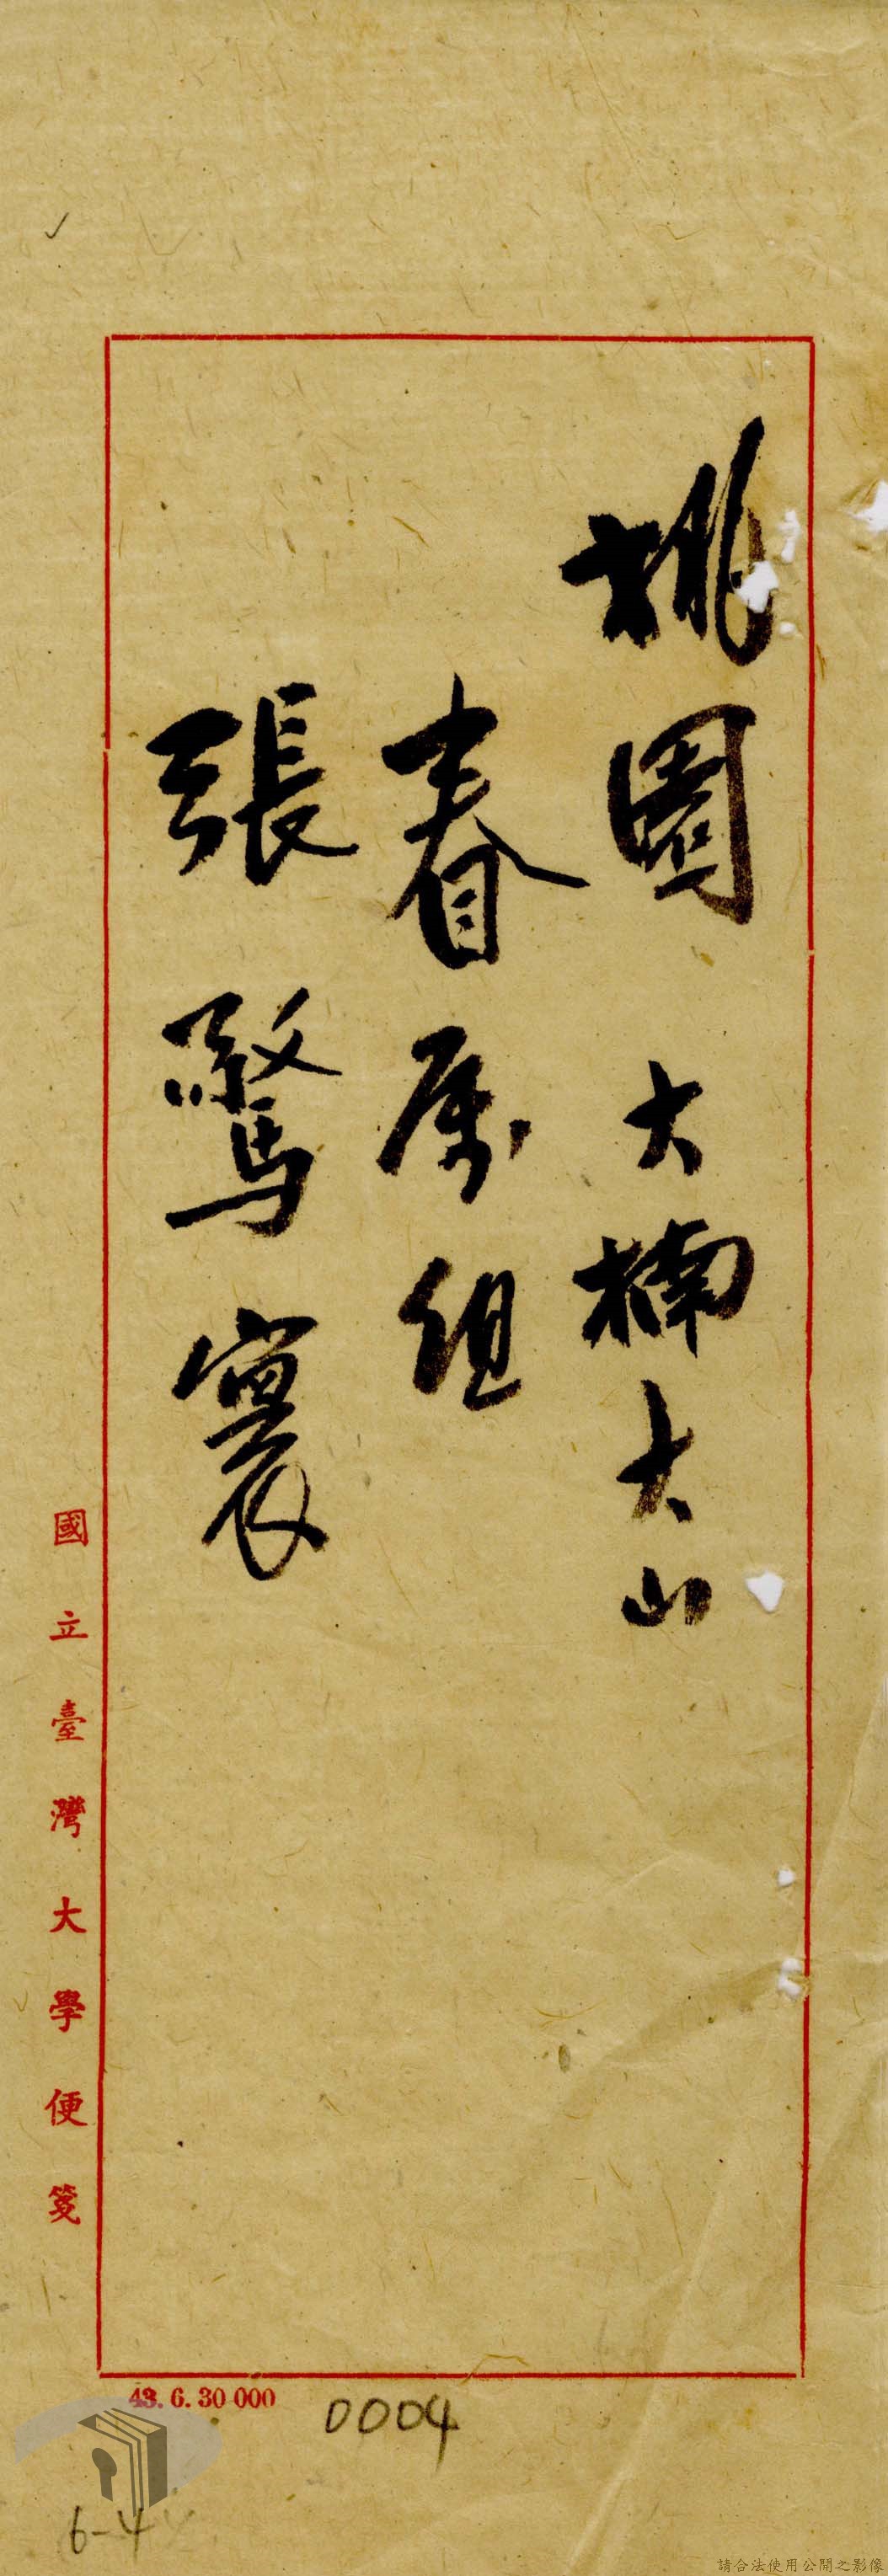 桃園 大楠大山
眷属組
張騖寰
國立臺灣大學便箋
43. 6. 30 000
0004
6-4
請合法使用公開之影像